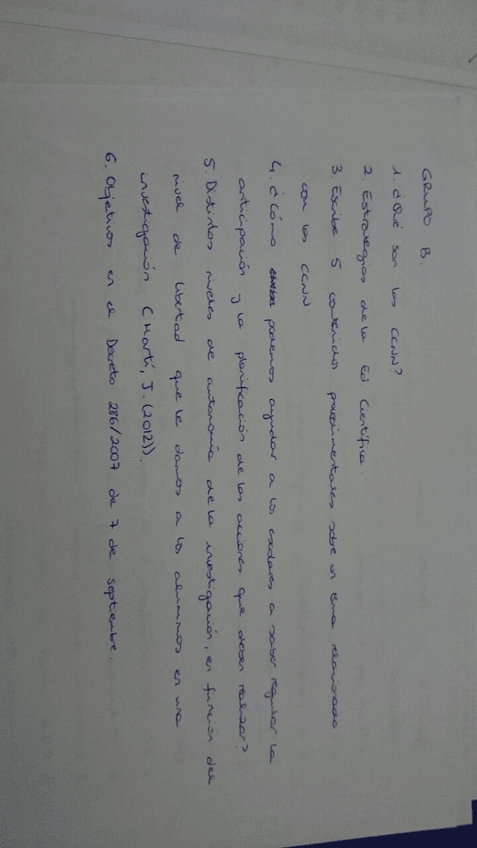 GRUPO B.
1. ¿Qué son las CCNN?
2. Estrategias de la Ed Científica.
3. Escribe 5 contenidos procedimentales sobre un tema relacionado
con las CCNN
4. ¿Cómo podemos ayudar a los escolares a saber regular la
anticipación y la planificación de las acciones que deben realizar?
5. Distintos niveles de autonomía de la investigación, en función del
nivel de libertad que le damos a los alumnos en una
investigación (Martí, J. (2012)).
6. Objetivos en el Decreto 286/2007 de 7 de septiembre.